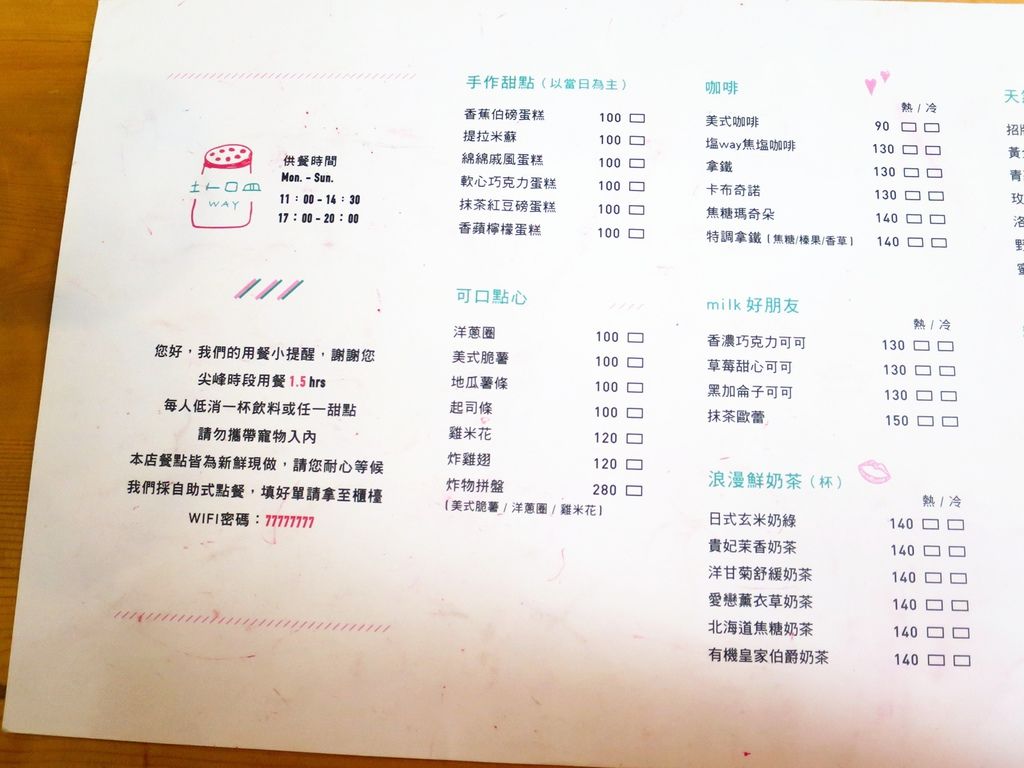 土鹵皿
WAY
供餐時間
Mon. - Sun.
11：00 - 14：30
17：00 - 20：00
您好，我們的用餐小提醒，謝謝您
尖峰時段用餐 1.5 hrs
每人低消一杯飲料或任一甜點
請勿攜帶寵物入內
本店餐點皆為新鮮現做，請您耐心等候
我們採自助式點餐，填好單請拿至櫃檯
WIFI密碼：77777777
手作甜點（以當日為主）
香蕉伯磅蛋糕 100
提拉米蘇 100
綿綿戚風蛋糕 100
軟心巧克力蛋糕 100
抹茶紅豆磅蛋糕 100
香蘋檸檬蛋糕 100
可口點心
洋蔥圈 100
美式脆薯 100
地瓜薯條 100
起司條 100
雞米花 120
炸雞翅 120
炸物拼盤 280
（美式脆薯 / 洋蔥圈 / 雞米花）
咖啡
熱 / 冷
美式咖啡 90
塩way焦塩咖啡 130
拿鐵 130
卡布奇諾 130
焦糖瑪奇朵 140
特調拿鐵（焦糖/榛果/香草） 140
milk 好朋友
熱 / 冷
香濃巧克力可可 130
草莓甜心可可 130
黑加侖子可可 130
抹茶歐蕾 150
浪漫鮮奶茶（杯）
熱 / 冷
日式玄米奶綠 140
貴妃茉香奶茶 140
洋甘菊舒緩奶茶 140
愛戀薰衣草奶茶 140
北海道焦糖奶茶 140
有機皇家伯爵奶茶 140
天
招
黃
青
玫
洛
野
蜜